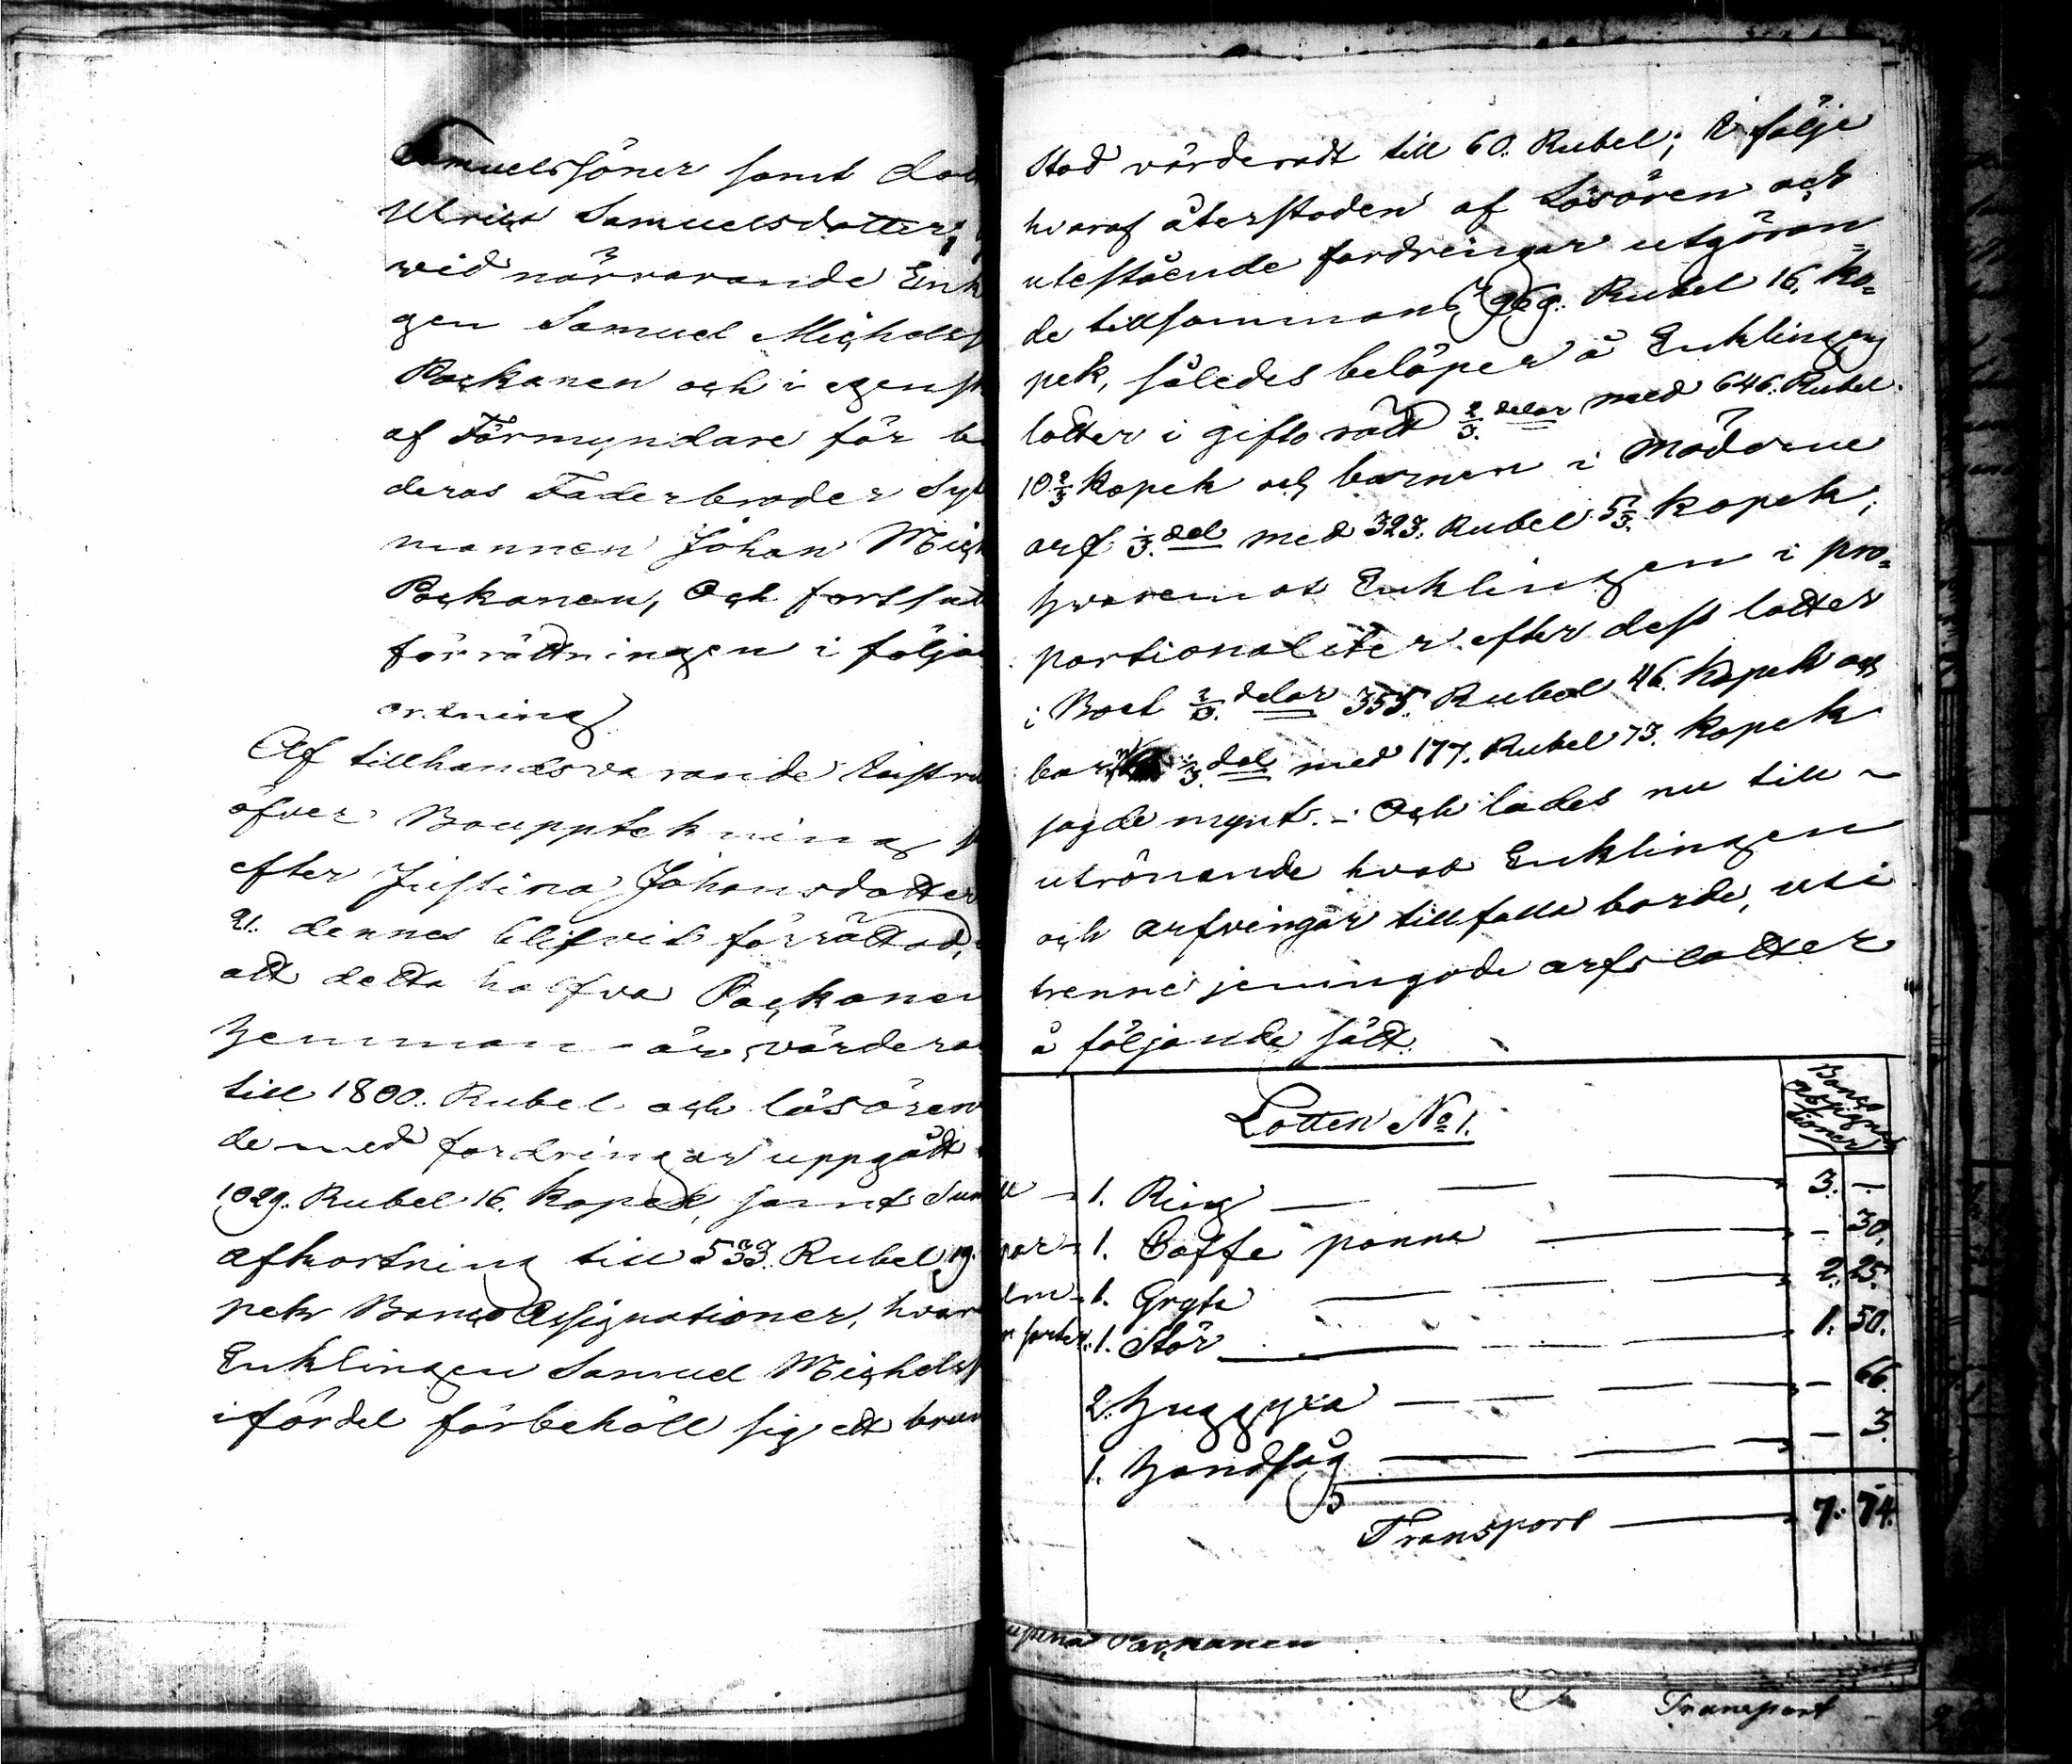 Samuelssöner samt dot
Ulrica Samuelsdotter,
vid närvarande Enk
gen Samuel Michelss
Packanen och i egensk
af Förmyndare för be
deras Faderbroder Sy
mannen Johan Mich
Packanen, Och fortsatt
förrättningen i följan
ordning
Af tillhandsvarande Instru
öfver Boupptekning
efter Justina Johansdotter
21. dennes blifvit förrättad,
att detta halfva Packanen
Hemman är värdera
till 1800. Rubel och lösören
de med fordringar uppgått
1,029. Rubel 16. Kopek, samt
afkortning till 533. Rubel 19.
pek Banco Assignationer, hvar
Enklingen Samuel Michelss
i fördel förbehöll sig ett brun
Stod värderadt till 60. Rubel; I följe
hvaraf återstoden af Lösören och
utestående fordringar utgöran=
de tillsammans 969. Rubel 16. Ko=
pek, således belöper å Enklingens
lotter i giftorätt 2/3. delar med 646. Rubel
10 2/3 Kopek och barnen i Möderne
arf 1/3. del med 323. Rubel 5 1/3. Kopek;
Hvaremot Enklingen i pro=
portionaliter efter dess lotter
i Boet 2/3. delar 355. Rubel 46. Kopek och
barnen 1/3. del med 177. Rubel 73. Kopek
sagde mynt. - Och lades nu till
utrönande hvad Enklingen
och arfvingar tillfalla borde, uti
trenne jemngode arfslotter
å följande sätt.
Lotten No 1.
Banco Assignationer
1. Ring 3. -.
1. Caffe panna - 30.
1. Gryta 2. 25.
1. Stör 1. 50.
2. Huggyxa - 66.
1. Handsåg - 3.
Transport 7. 74.
Packanen
Transport